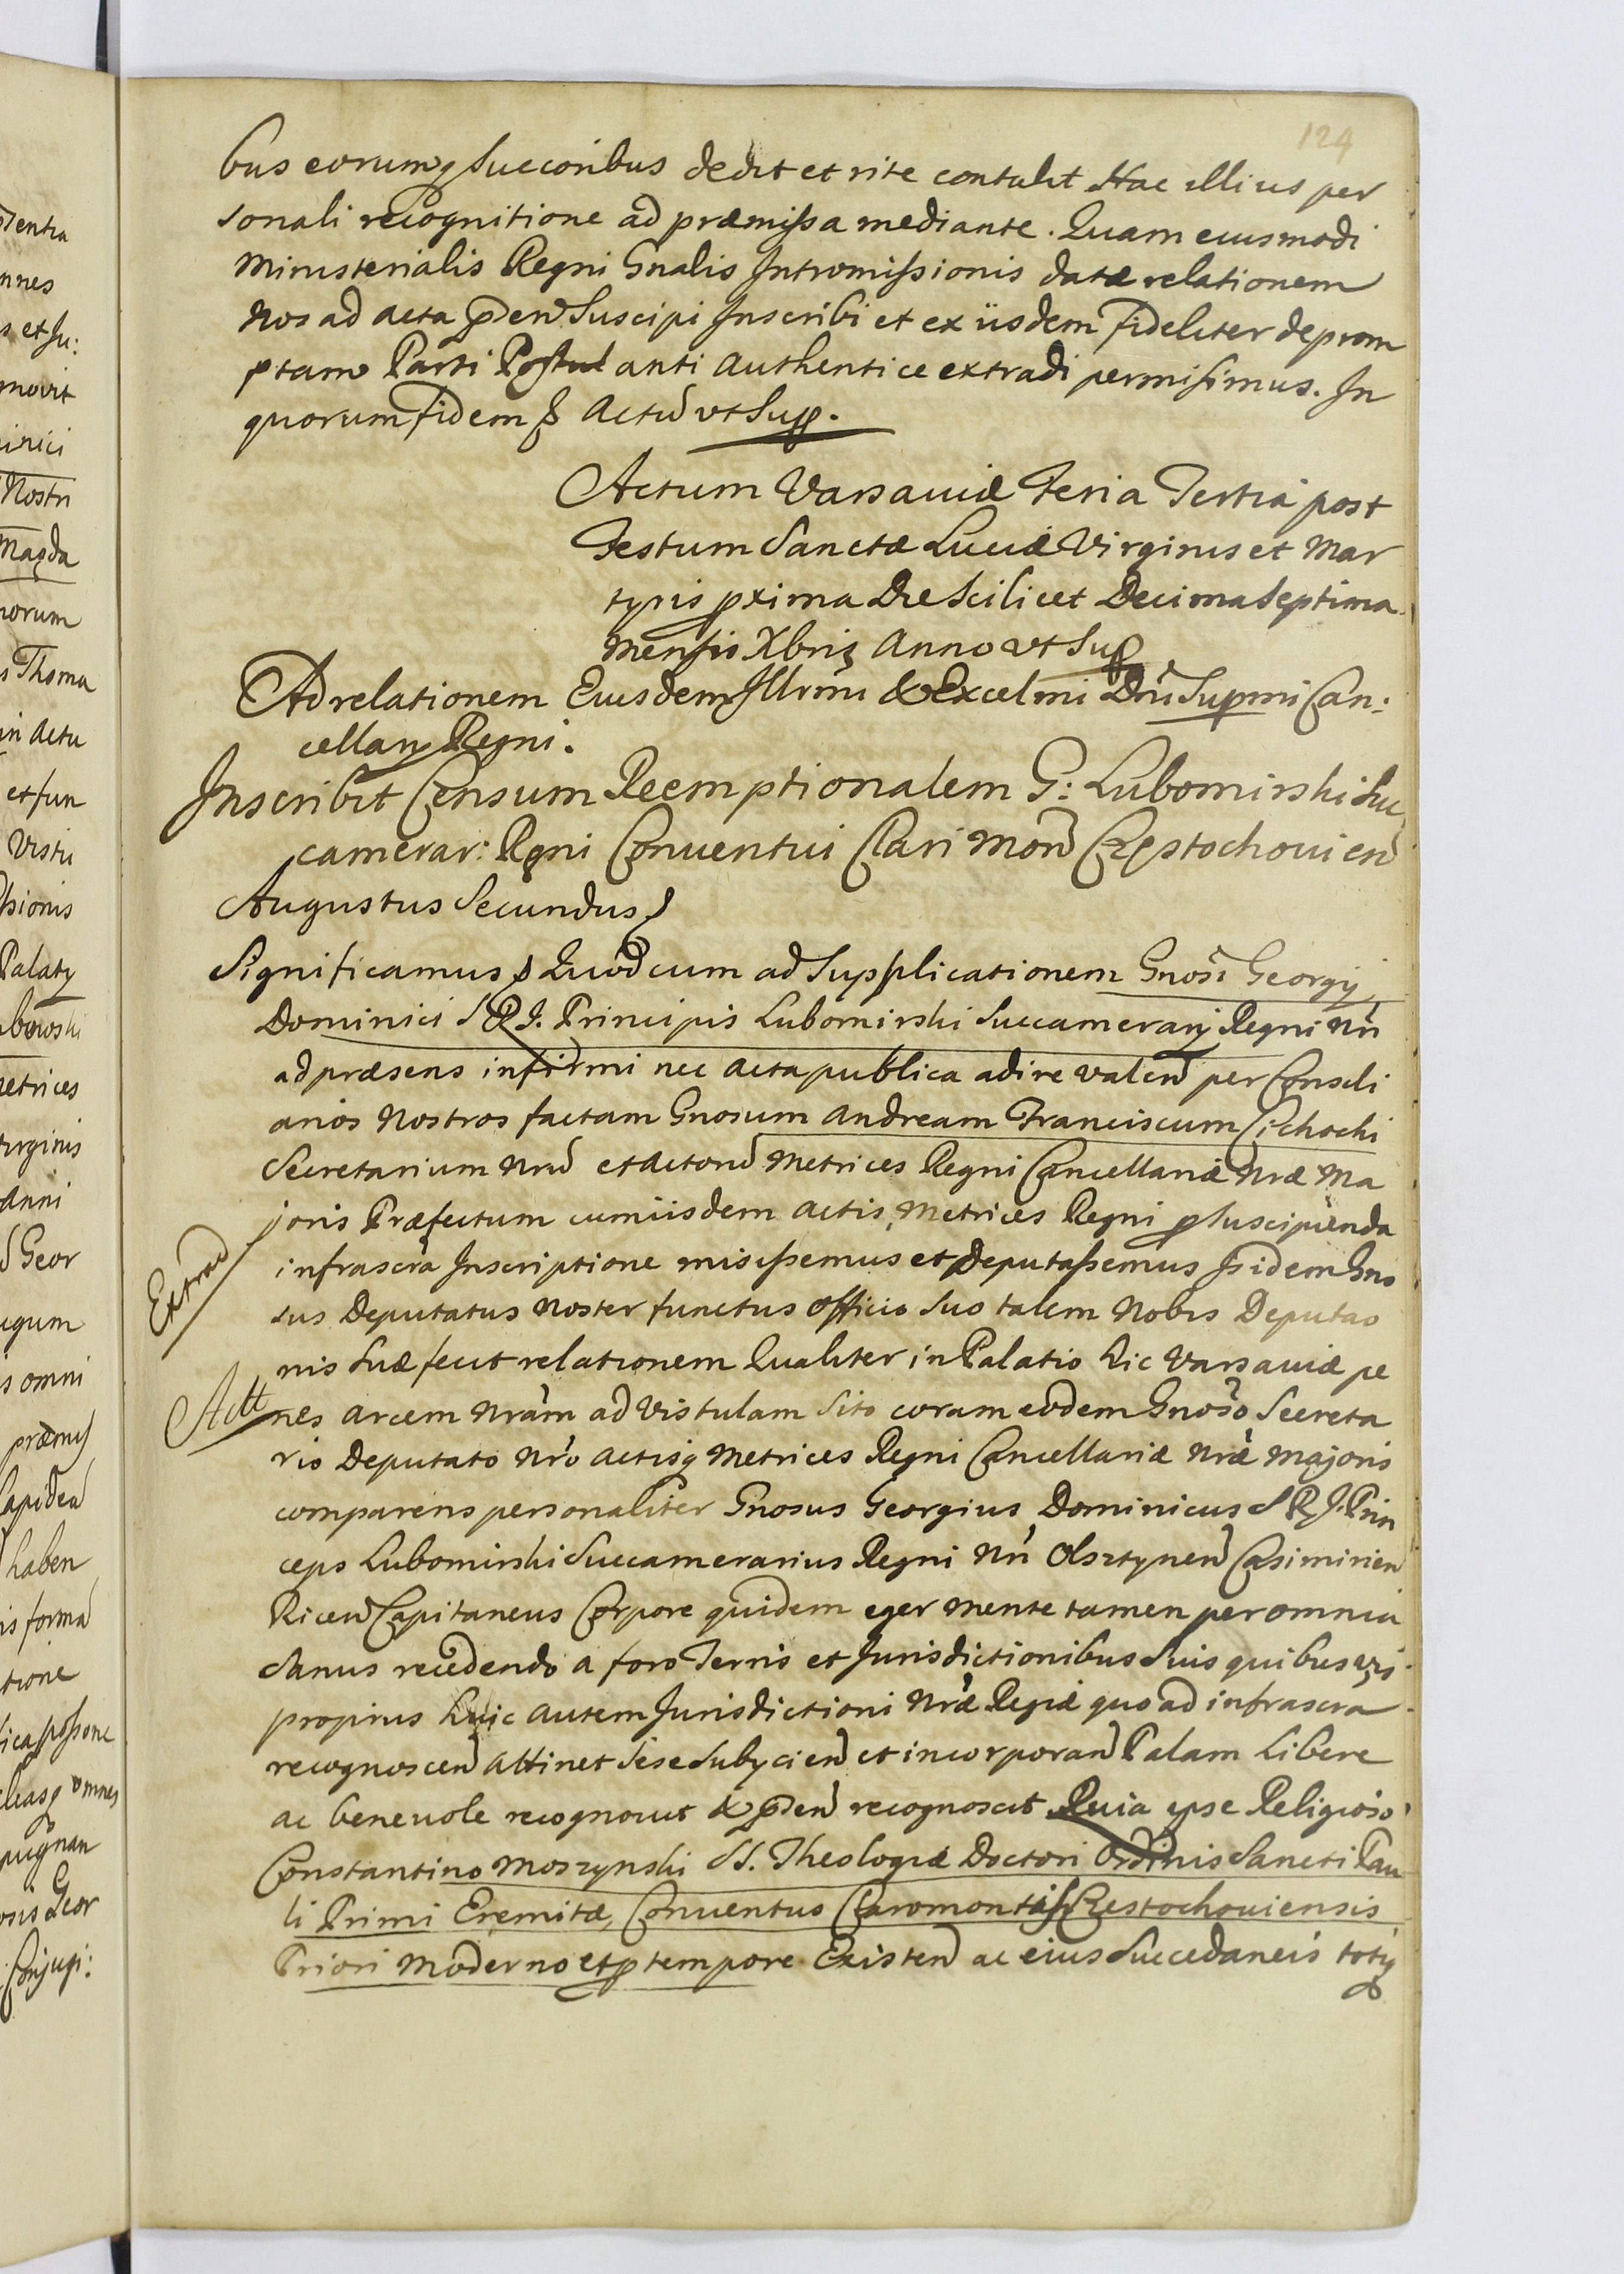 124
bus eorumq Succoribus dedit et rite contulit Hac illius per
sonali recognitione ad præmissa mediante. Quam eiusmodi
Ministerialis Regni Gnalis Intromissionis datæ relationem
Nos ad acta pñden Suscipi Inscribi et ex iisdem fideliter deprom
ptam Parti Postul anti authentice extradi permisimus. In
quorum fidem & Actū vt Sup.
Actum Varsaviæ Feria Tertia post
Festum Sanctæ Luciæ Virginis et Mar
tyris pxima Die Scilicet Decima Septima
Mensis Xbris Anno vt Sup
Ad relationem Eiusdem Illrmi & Excelmi Dni Supmi Can:
cellarij Regni.
Inscribit Censum Reemptionalem G: Lubomirski Suc
camerar: Rgni Conventui Clari Mon Czestochovien
Augustus Secundus &
Significamus & Quod cum ad Supplicationem Gnosi Georgij
Dominici S R J. Principis Lubomirski Succamerarij Regni Nri
ad præsens infirmi nec acta publica adire valen per Consili
arios Nostros factam Gnosum Andream Franciscum Cichocki
Secretarium Nrum et actorum Metrices Regni Cancellariæ Nræ Ma
joris Præfectum cum iisdem actis Metrices Regni p suscipienda
infrascra Inscriptione misissemus et Deputassemus Isidem Gno
sus Deputatus Noster functus officio Suo talem Nobis Deputao
nis Suæ fecit relationem Qualiter in Palatio hic Varsaviæ pe
nes arcem Nram ad Vistulam Sito coram eodem Gnoso Secreta
rio Deputato Nro actisq Metrices Regni Cancellariæ Nræ Majoris
comparens personaliter Gnosus Georgius Dominicus S R J. Prin
ceps Lubomirski Succamerarius Regni Nri Olsztynen Casimirien
Ricen Capitaneus Corpore quidem eger mente tamen per omnia
Sanus recedendo a foro Terris et Jurisdictionibus Suis quibusvis
proprius huic autem Jurisdictioni Nræ Regiæ quo ad infrascra
recognoscen attinet Sese Subycien et incorporan Palam Libere
ac benevole recognovit & pñden recognoscit Quia ipse Religioso
Constantino Moszynski SS. Theologiæ Doctori Ordinis Sancti Pau
li Primi Eremitæ, Conventus Claromontis Czestochoviensis
Priori Moderno et p tempore Existen ac eius Succedaneis totiq
Extrad
Actt